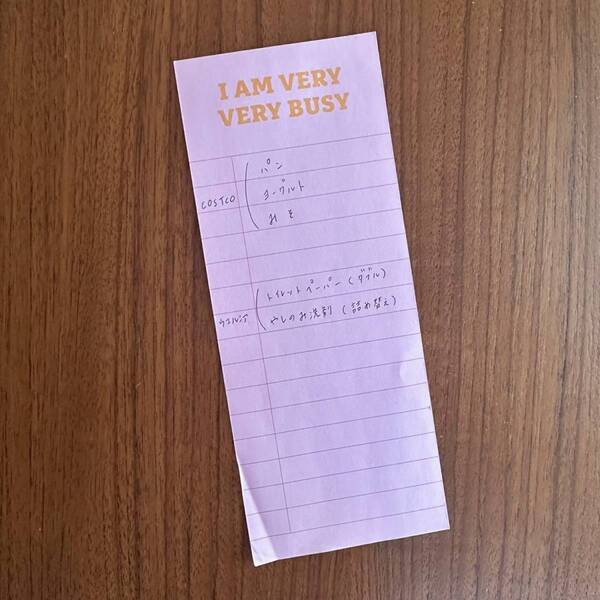 I AM VERY
VERY BUSY
パン
COSTCO ヨーグルト
みそ
トイレットペーパー(ダブル)
ウエルシア やしのみ洗剤(詰め替え)